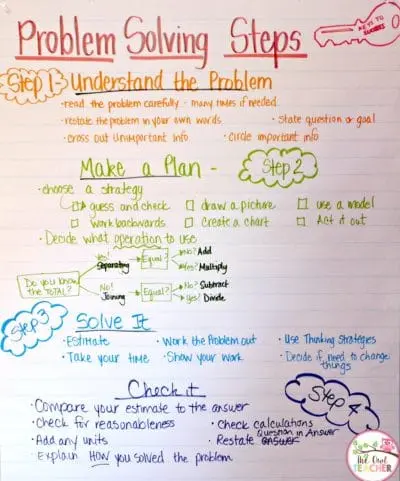 Problem Solving Steps
KEYS TO SUCCESS
Step 1 Understand the Problem
• read the problem carefully - many times if needed.
• restate the problem in your own words • State question or goal
• cross out unimportant info • circle important info
Make a Plan - Step 2
• choose a strategy
guess and check draw a picture use a model
work backwards Create a chart Act it out
• Decide what operation to use
Do you know the TOTAL?
Yes! Separating Equal? No? Add
Yes? Multiply
No! Joining Equal? No? Subtract
Yes? Divide
Step 3 Solve It
• Estimate • Work the Problem out • Use Thinking Strategies
• Take your time • Show your work • Decide if need to change things
Check it Step 4
• Compare your estimate to the answer
• Check for reasonableness • Check calculations
• Add any units • Restate answer Question in Answer
• Explain HOW you solved the problem
the Owl TEACHER